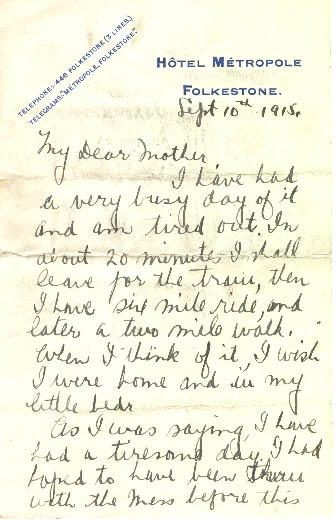 TELEPHONE:- 446 FOLKESTONE (3 LINES.)
TELEGRAMS:- "METROPOLE, FOLKESTONE."
HÔTEL MÉTROPOLE
FOLKESTONE.
Sept 10th 1915.
My Dear Mother
I have had
a very busy day of it
and am tired out. In
about 20 minute I shall
leave for the train, then
I have six mile ride, and
later a two mile walk.
When I think of it, I wish
I were home and in my
little bed.
As I was saying, I have
had a tiresome day. I had
hoped to have been thru
with the Mess before this